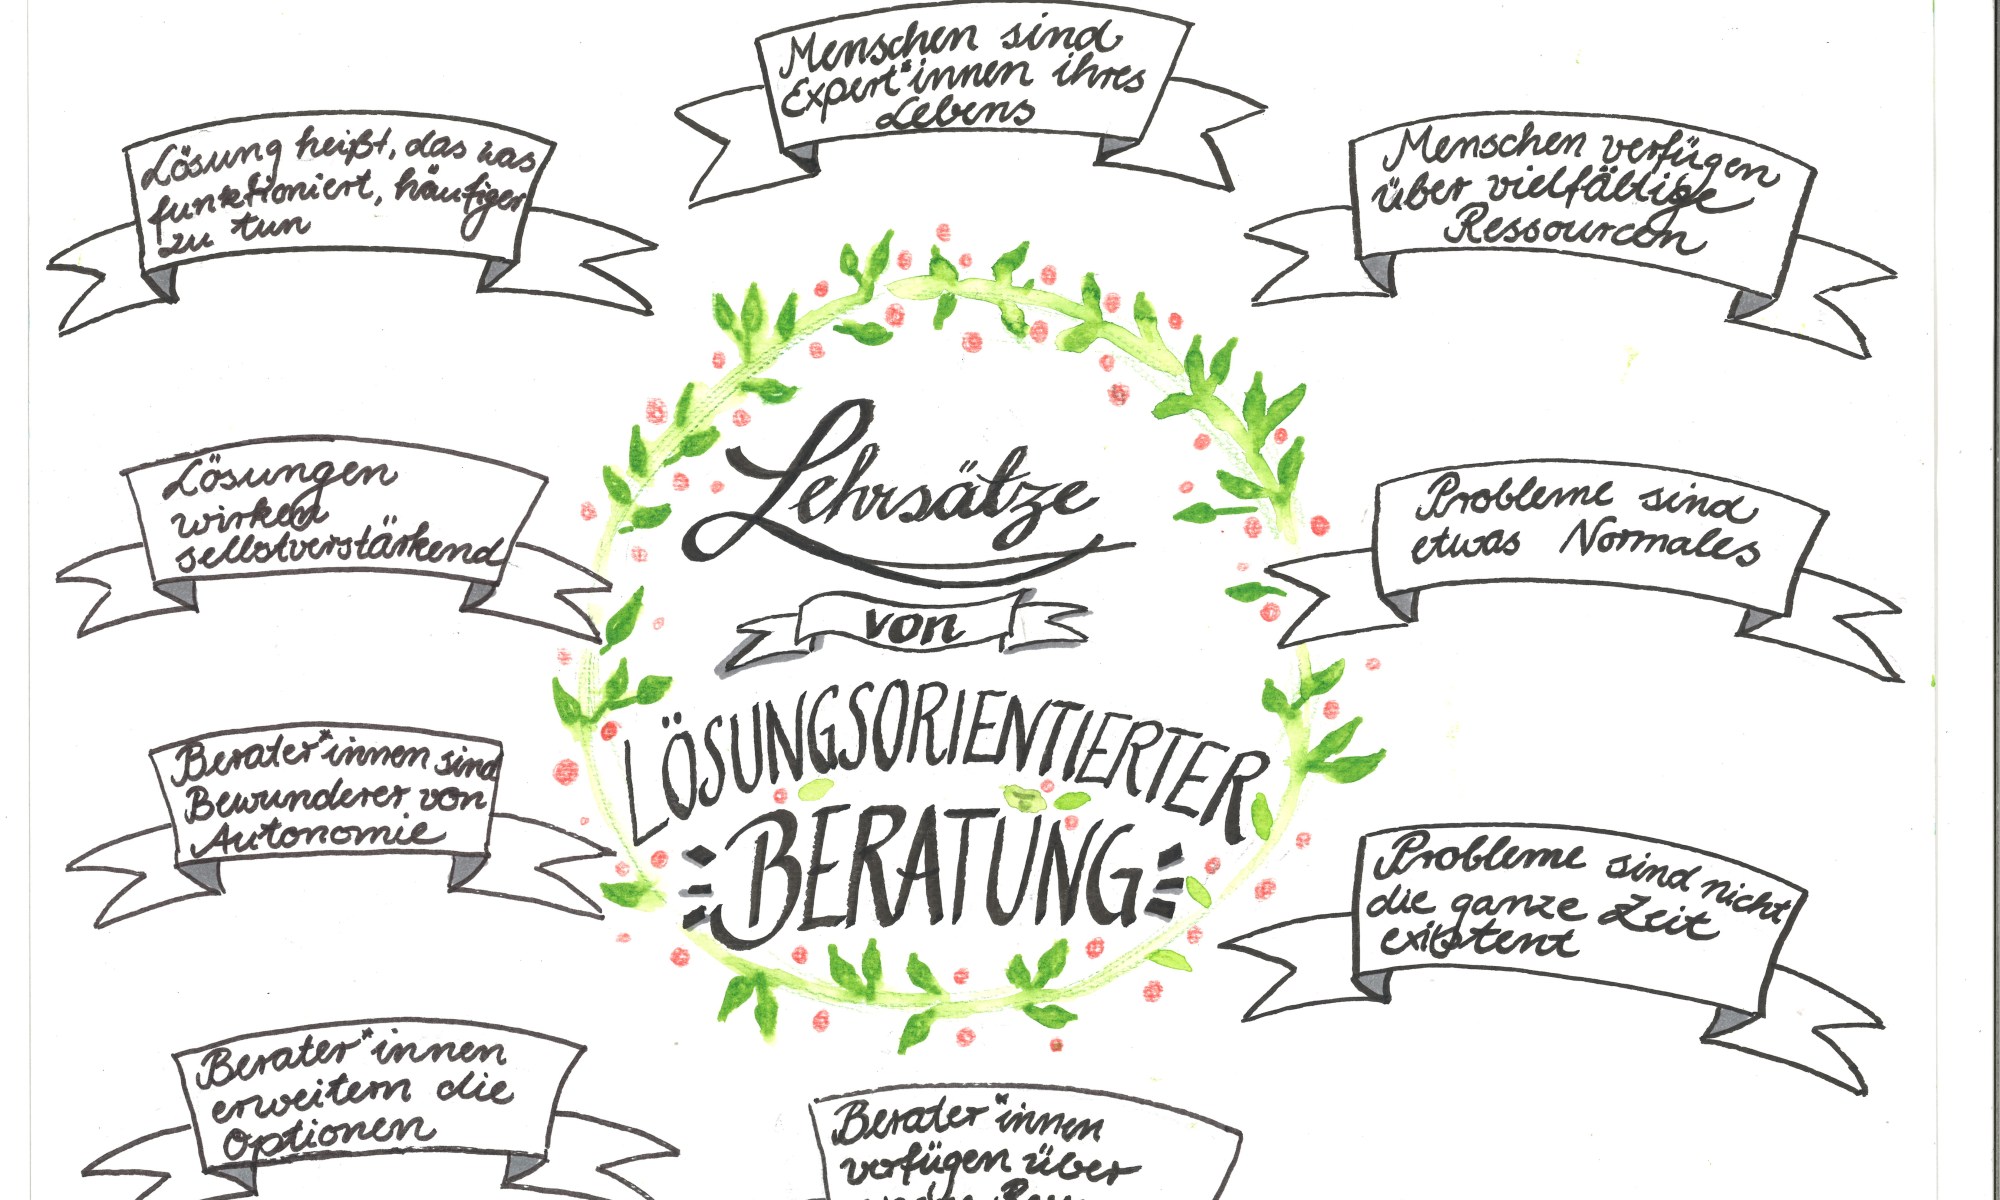 Menschen sind
Expert*innen ihres
Lebens
Lösung heißt, das was
funktioniert, häufiger
zu tun
Menschen verfügen
über vielfältige
Ressourcen
Lehrsätze
von
LÖSUNGSORIENTIERTER
BERATUNG
Lösungen
wirken
selbstverstärkend
Probleme sind
etwas Normales
Berater*innen sind
Bewunderer von
Autonomie
Probleme sind nicht
die ganze Zeit
existent
Berater*innen
erweitern die
Optionen
Berater*innen
verfügen über